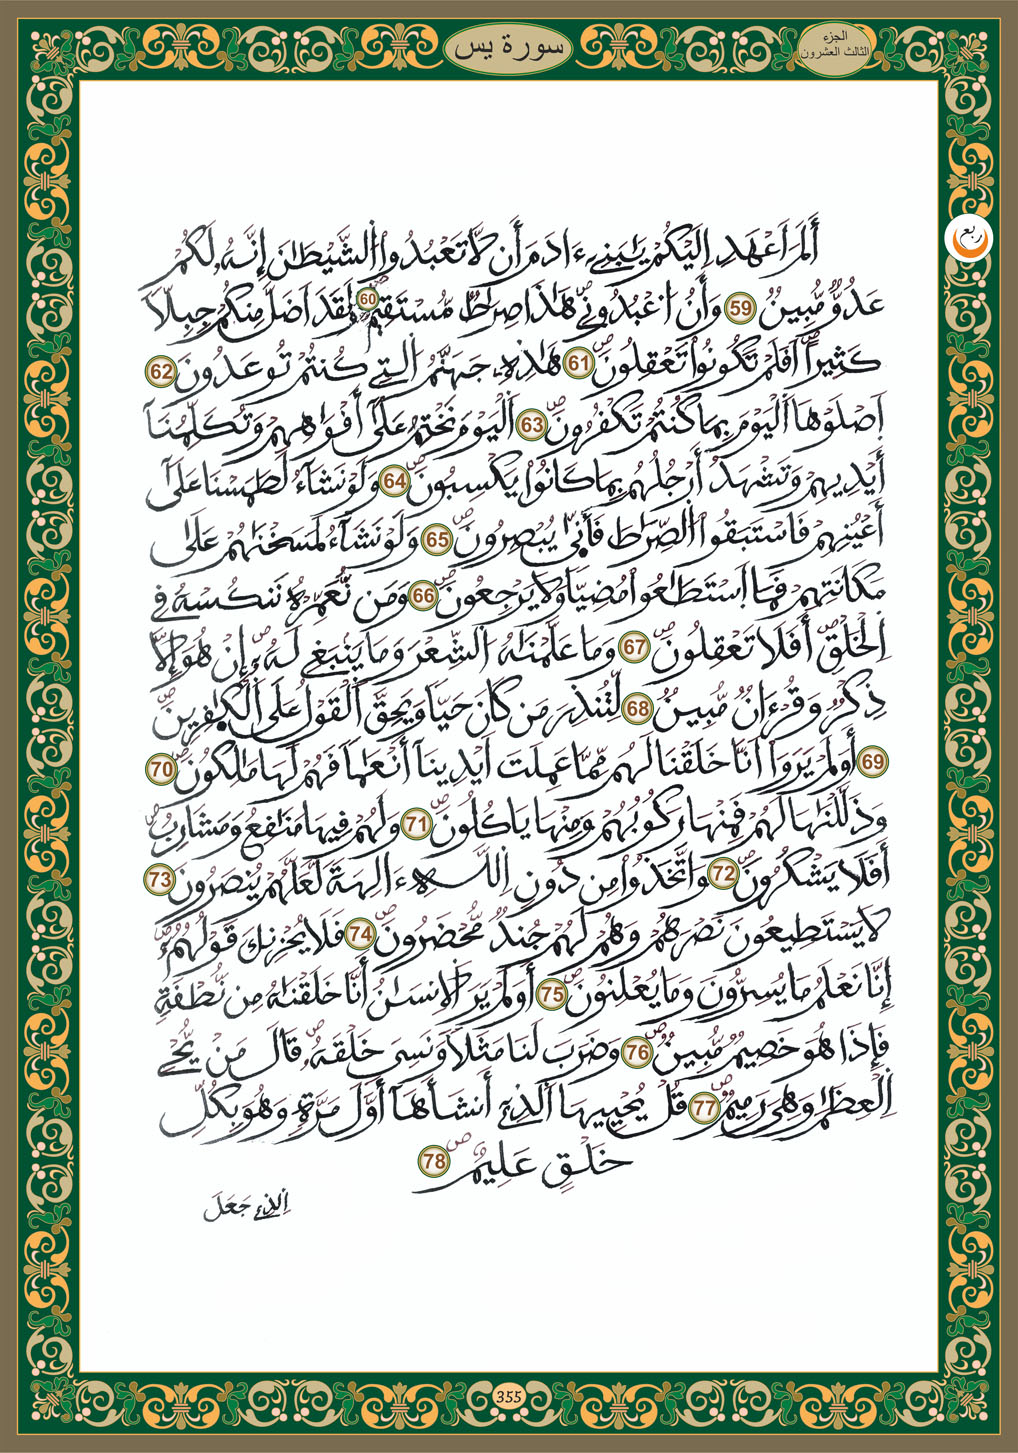 سورة يس
الجزء
الثالث العشرون
ربع
أَلَمَ اَعْهَدِ اِلَيْكُمْ يَٰبَنِےٓ ءَادَمَ أَن لَّا تَعْبُدُوا۟ الشَّيْطَٰنَ إِنَّهُۥ لَكُمْ
عَدُوٌّ مُّبِينٌ 59 وَأَنُ اعْبُدُونِے هَٰذَا صِرَٰطٌ مُّسْتَقِيمٌ 60 وَلَقَدَ اَضَلَّ مِنكُمْ جِبِلّاٗ
كَثِيراً اَفَلَمْ تَكُونُوا۟ تَعْقِلُونَ 61 هَٰذِهِۦ جَهَنَّمُ اُلتِے كُنتُمْ تُوعَدُونَ 62
اَصْلَوْهَا اَلْيَوْمَ بِمَا كُنتُمْ تَكْفُرُونَ 63 اَلْيَوْمَ نَخْتِمُ عَلَىٰٓ أَفْوَٰهِهِمْ وَتُكَلِّمُنَآ
أَيْدِيهِمْ وَتَشْهَدُ أَرْجُلُهُم بِمَا كَانُوا۟ يَكْسِبُونَ 64 وَلَوْ نَشَآءُ لَطَمَسْنَا عَلَىٰٓ
أَعْيُنِهِمْ فَاسْتَبَقُوا۟ الصِّرَٰطَ فَأَنَّىٰ يُبْصِرُونَ 65 وَلَوْ نَشَآءُ لَمَسَخْنَٰهُمْ عَلَىٰ
مَكَانَتِهِمْ فَمَا اَسْتَطَٰعُوا۟ مُضِيّاٗ وَلَا يَرْجِعُونَ 66 وَمَن نُّعَمِّرْهُ نَنكُسْهُ فِے
اِلْخَلْقِ أَفَلَا تَعْقِلُونَ 67 وَمَا عَلَّمْنَٰهُ اُلشِّعْرَ وَمَا يَنۢبَغِے لَهُۥٓ إِنْ هُوَ إِلَّا
ذِكْرٌ وَقُرْءَانٌ مُّبِينٌ 68 لِّتُنذِرَ مَن كَانَ حَيّاٗ وَيَحِقَّ اَلْقَوْلُ عَلَى اَلْكَٰفِرِينَ
69 أَوَلَمْ يَرَوَا۟ اَنَّا خَلَقْنَا لَهُم مِّمَّا عَمِلَتَ اَيْدِينَآ أَنْعَٰماٗ فَهُمْ لَهَا مَٰلِكُونَ 70
وَذَلَّلْنَٰهَا لَهُمْ فَمِنْهَا رَكُوبُهُمْ وَمِنْهَا يَاكُلُونَ 71 وَلَهُمْ فِيهَا مَنَٰفِعُ وَمَشَارِبُ
أَفَلَا يَشْكُرُونَ 72 وَاتَّخَذُوا۟ مِن دُونِ اِللَّهِ ءَالِهَةٗ لَّعَلَّهُمْ يُنصَرُونَ 73
لَا يَسْتَطِيعُونَ نَصْرَهُمْ وَهُمْ لَهُمْ جُندٌ مُّحْضَرُونَ 74 فَلَا يُحْزِنكَ قَوْلُهُمُۥٓ
إِنَّا نَعْلَمُ مَا يُسِرُّونَ وَمَا يُعْلِنُونَ 75 أَوَلَمْ يَرَ اَلِانسَٰنُ أَنَّا خَلَقْنَٰهُ مِن نُّطْفَةٖ
فَإِذَا هُوَ خَصِيمٌ مُّبِينٌ 76 وَضَرَبَ لَنَا مَثَلاٗ وَنَسِىَ خَلْقَهُۥ قَالَ مَنْ يُّحْىِ
اِلْعِظَٰمَ وَهِىَ رَمِيمٌ 77 قُلْ يُحْيِيهَا اَلذِےٓ أَنشَأَهَآ أَوَّلَ مَرَّةٖ وَهُوَ بِكُلِّ
خَلْقٍ عَلِيمٌ 78
اِلذِے جَعَلَ
355